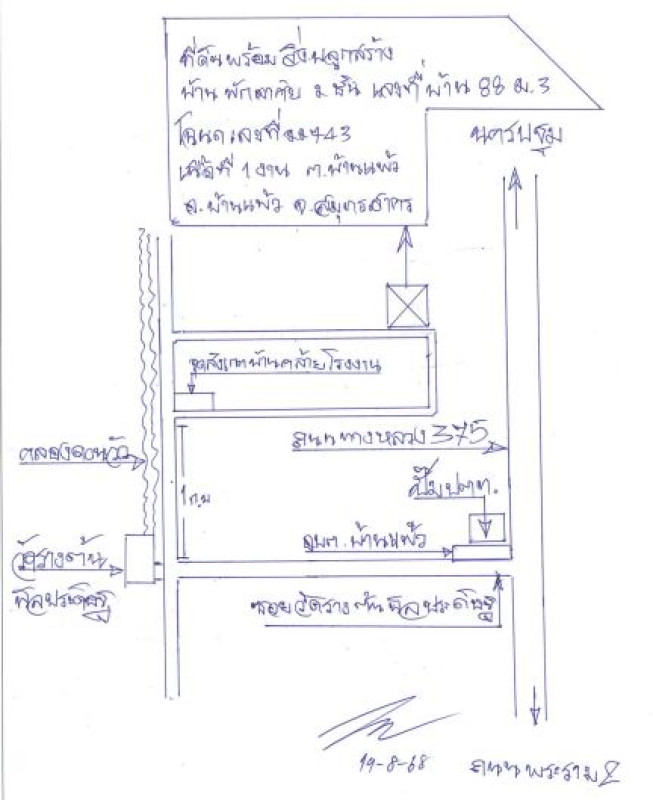 ที่ดินพร้อมสิ่งปลูกสร้าง
บ้านพักอาศัย 2 ชั้น เลขที่บ้าน 88 ม.3
โฉนดเลขที่ 22743
เนื้อที่ 1 งาน ต.บ้านแพ้ว
อ.บ้านแพ้ว จ.สมุทรสาคร
นครปฐม
จุดสังเกตบ้านคล้ายโรงงาน
ถนนทางหลวง 375
คลองดอนวัว
1 ก.ม
ปั๊มปตท.
อบต.บ้านแพ้ว
วัดรางต้น
นิลประดิษฐ์
ซอยวัดรางต้นนิลประดิษฐ์
19-8-68
ถนนพระราม 2